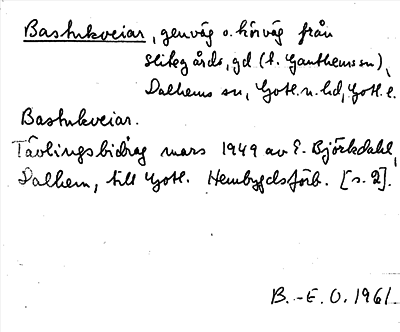 Bastukveiar, genväg o. körväg från
Slitegårds, gd (t. Ganthems sn),
Dalhems sn, Gotl. n. hd, Gotl. l.
Bastukveiar.
Tävlingsbidrag mars 1949 av E. Björkdahl,
Dalhem, till Gotl. Hembygdsförb. [s. 2].
B.-E. O. 1961